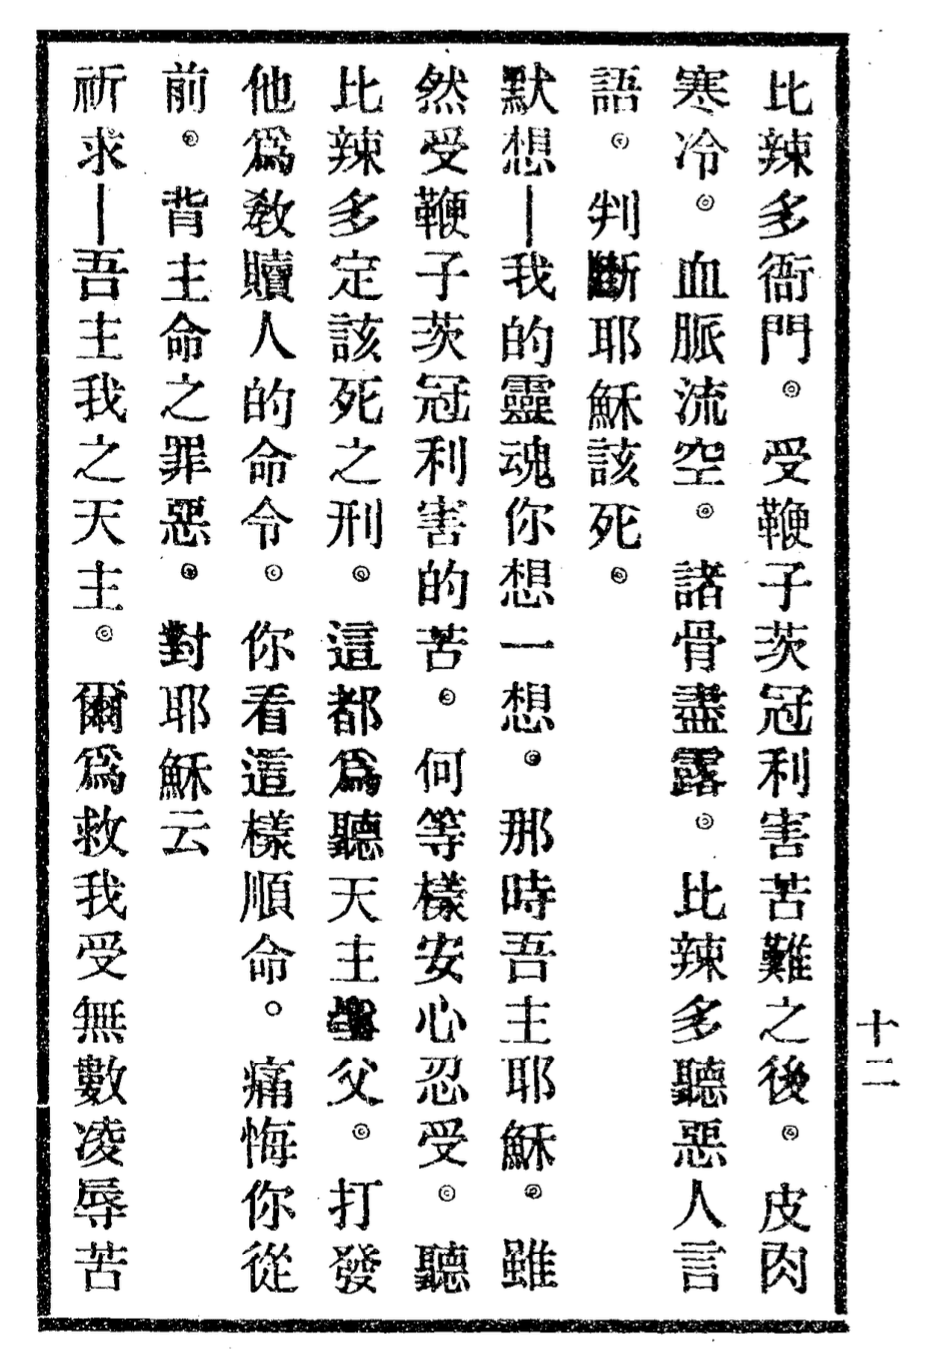 比辣多衙門。受鞭子茨冠利害苦難之後。皮肉
寒冷。血脈流空。諸骨盡露。比辣多聽惡人言
語。判斷耶穌該死。
默想—我的靈魂你想一想。那時吾主耶穌。雖
然受鞭子茨冠利害的苦。何等樣安心忍受。聽
比辣多定該死之刑。這都爲聽天主父。打發
他爲敎贖人的命令。你看這樣順命。痛悔你從
前。背主命之罪惡。對耶穌云
祈求—吾主我之天主。爾爲救我受無數凌辱苦
十二